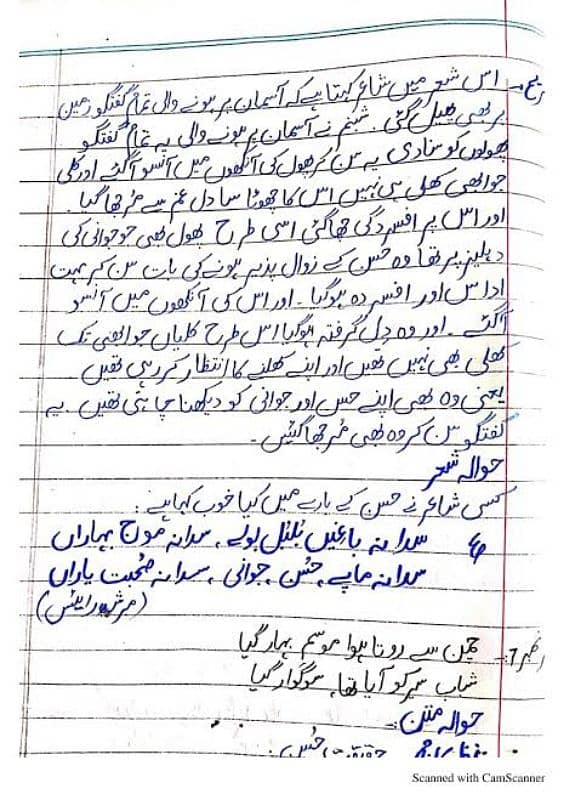 تشریح: اس شعر میں شاعر کہتا ہے کہ آسمان پر ہونے والی تمام گفتگو زمین
پر بھی پھیل گئی۔ شبنم نے آسمان پر ہونے والی یہ تمام گفتگو
پھولوں کو سنا دی یہ سن کر پھول کی آنکھوں میں آنسو آ گئے اور کلی
جو ابھی کھلی ہی نہیں اس کا چھوٹا سا دل غم سے مُرجھا گیا۔
اور اس پر افسردگی چھا گئی اسی طرح پھول بھی جو جوانی کی
دہلیز پر تھا وہ حسن کے زوال پذیر ہونے کی بات سن کر بہت
اداس اور افسردہ ہو گیا۔ اور اس کی آنکھوں میں آنسو
آ گئے۔ اور وہ دل گرفتہ ہو گیا اس طرح کلیاں جو ابھی تک
کھلی بھی نہیں تھیں اور اپنے کھلنے کا انتظار کر رہی تھیں
یعنی وہ بھی اپنے حسن اور جوانی کو دیکھنا چاہتی تھیں۔ یہ
گفتگو سن کر وہ بھی مُرجھا گئیں۔
حوالہ شعر
کسی شاعر نے حسن کے بارے میں کیا خوب کہا ہے:
؏ سدا نہ باغیں بُلبُل بولے، سدا نہ موج بہاراں
سدا نہ ماپے، حُسن، جوانی، سدا نہ صُحبت یاراں
شعر نمبر 7: چمن سے روتا ہوا موسمِ بہار گیا
شباب سیر کو آیا تھا، سوگوار گیا
حوالہ متن:
حقیقتِ حُسن
Scanned with CamScanner